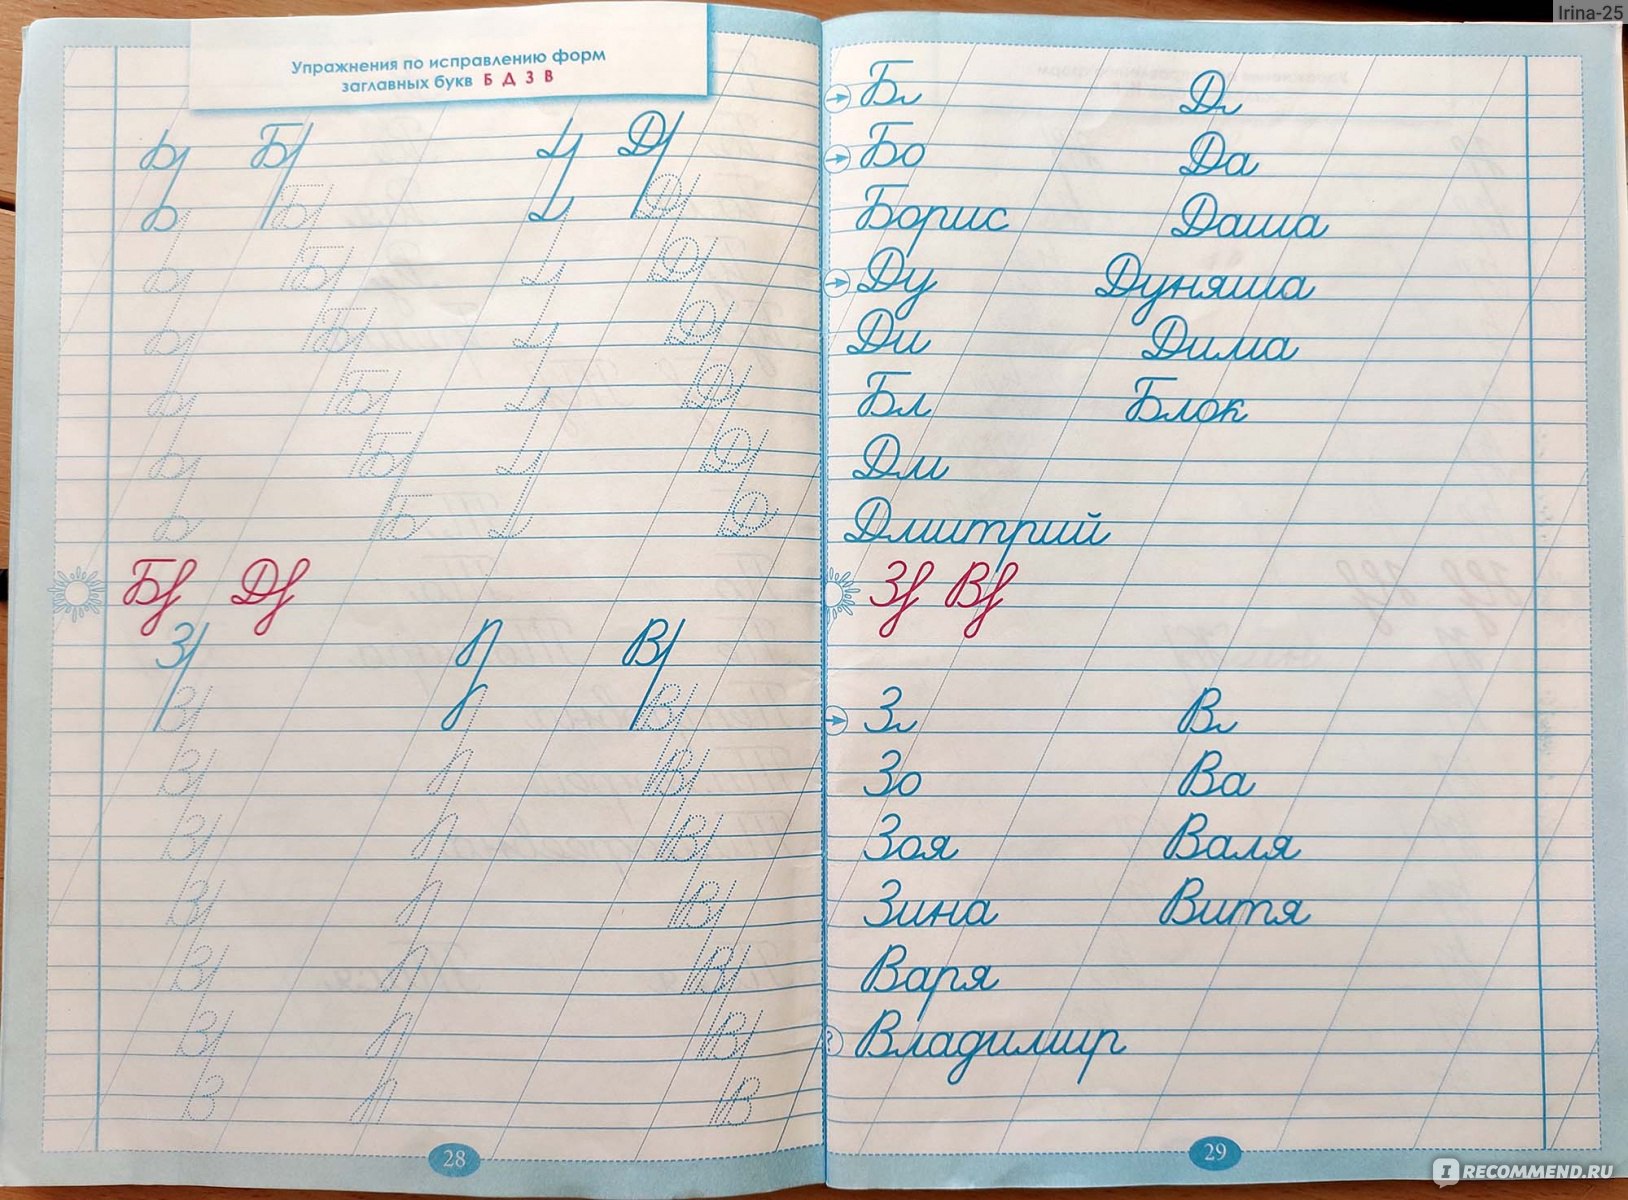 Irina-25
Упражнения по исправлению форм
заглавных букв Б Д З В
Б Д
Б Д
Б Д
Б Д
Б Д
Б Д
Б Д
Б Д
З В
В В
В В
В В
В В
В В
В В
В В
28
Б
Д
Бо Да
Борис Даша
Ду Дуняша
Ди Дима
Бл Блок
Дм
Дмитрий
З В
З
В
Зо Ва
Зоя Валя
Зина Витя
Варя
Владимир
29
IRECOMMEND.RU